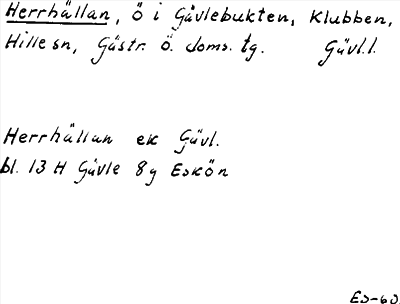 Herrhällan, ö i Gävlebukten, Klubben,
Hillesn, Gästr. ö. doms. tg. Gävl.l.
Herrhällan ek Gävl.
bl. 13 H Gävle 8g Eskön
EJ-60